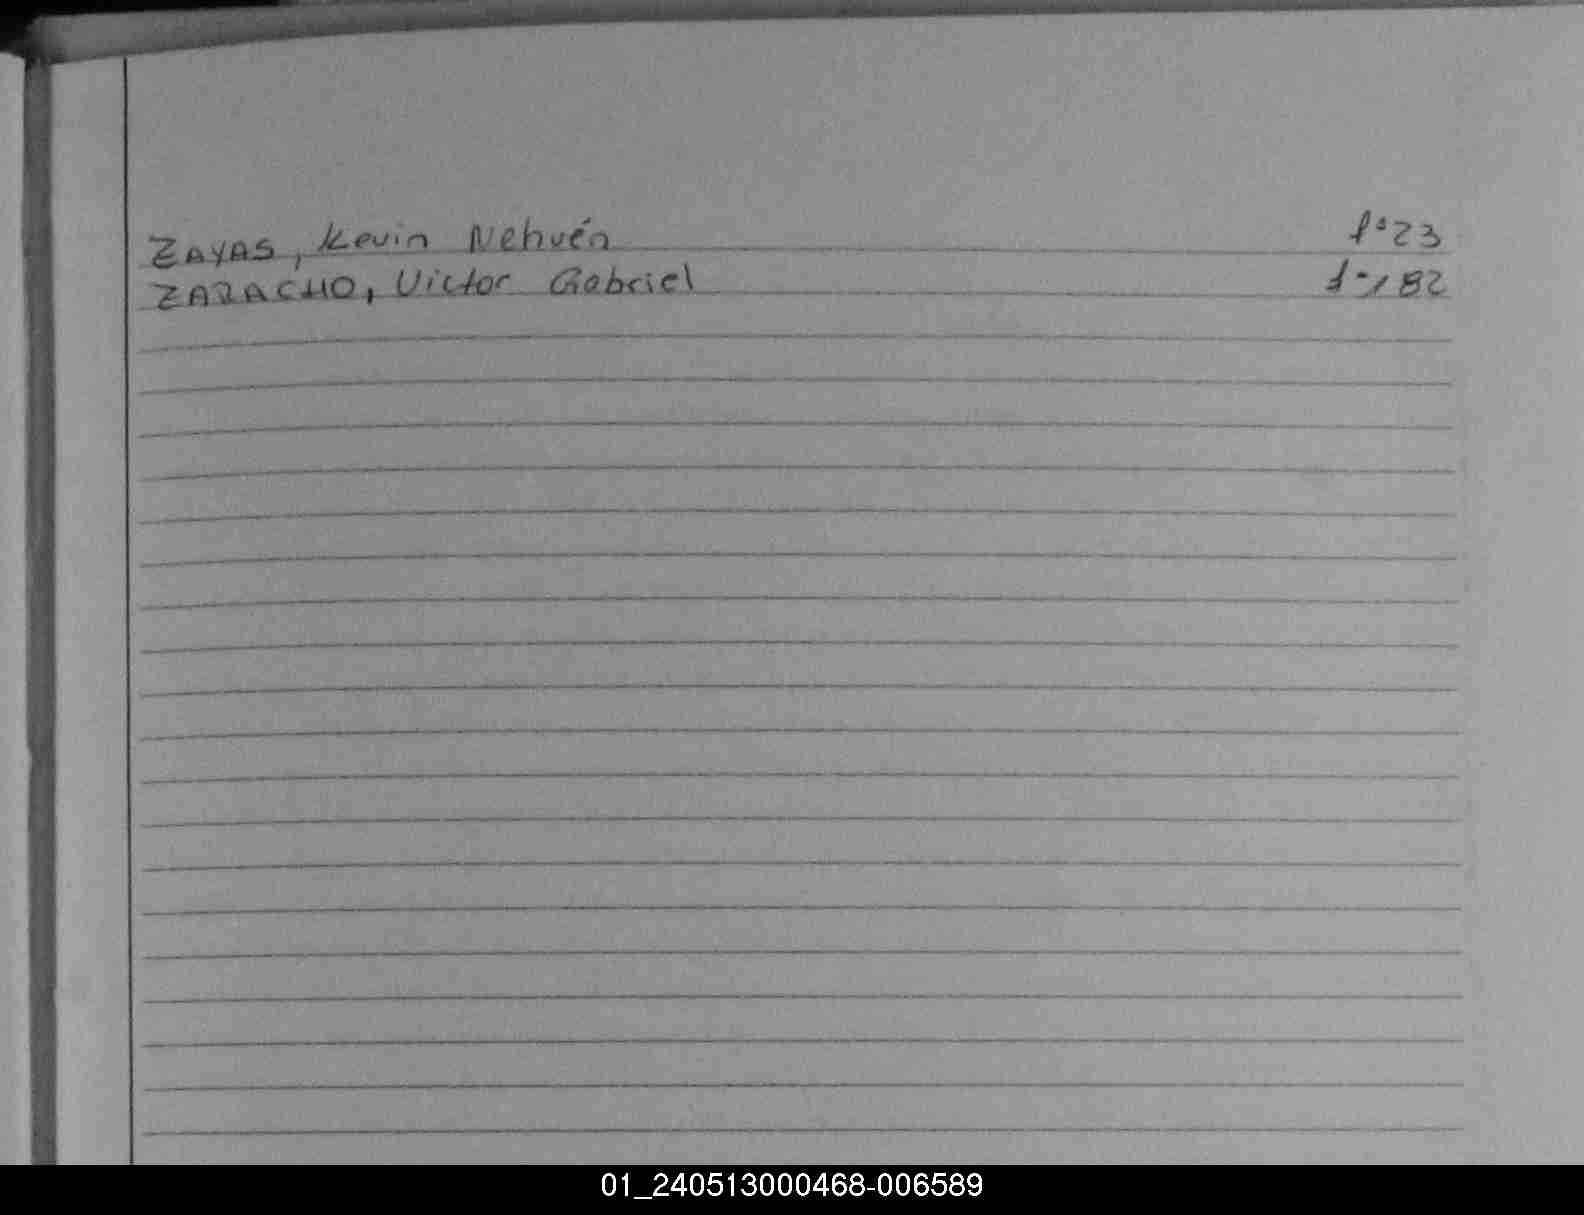 ZAYAS, Kevin Nehuén fº23
ZARACHO, Victor Gabriel fº182
01_240513000468-006589